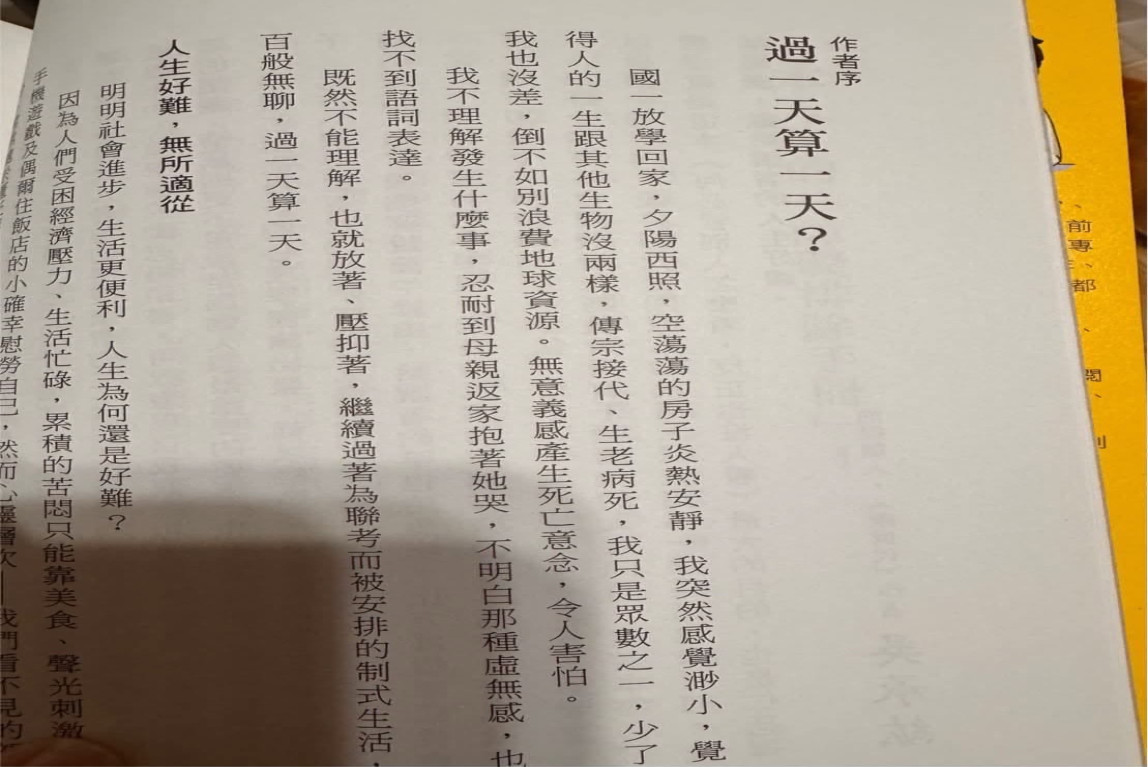 作者序
過一天算一天？
國一放學回家，夕陽西照，空蕩蕩的房子炎熱安靜，我突然感覺渺小，覺
得人的一生跟其他生物沒兩樣，傳宗接代、生老病死，我只是眾數之一，少了
我也沒差，倒不如別浪費地球資源。無意義感產生死亡意念，令人害怕。
我不理解發生什麼事，忍耐到母親返家抱著她哭，不明白那種虛無感，也
找不到語詞表達。
既然不能理解，也就放著、壓抑著，繼續過著為聯考而被安排的制式生活，
百般無聊，過一天算一天。
人生好難，無所適從
明明社會進步，生活更便利，人生為何還是好難？
因為人們受困經濟壓力、生活忙碌，累積的苦悶只能靠美食、聲光刺激
手機遊戲及偶爾住飯店的小確幸慰勞自己，然而心靈層次——我們看不見的
前專、
都